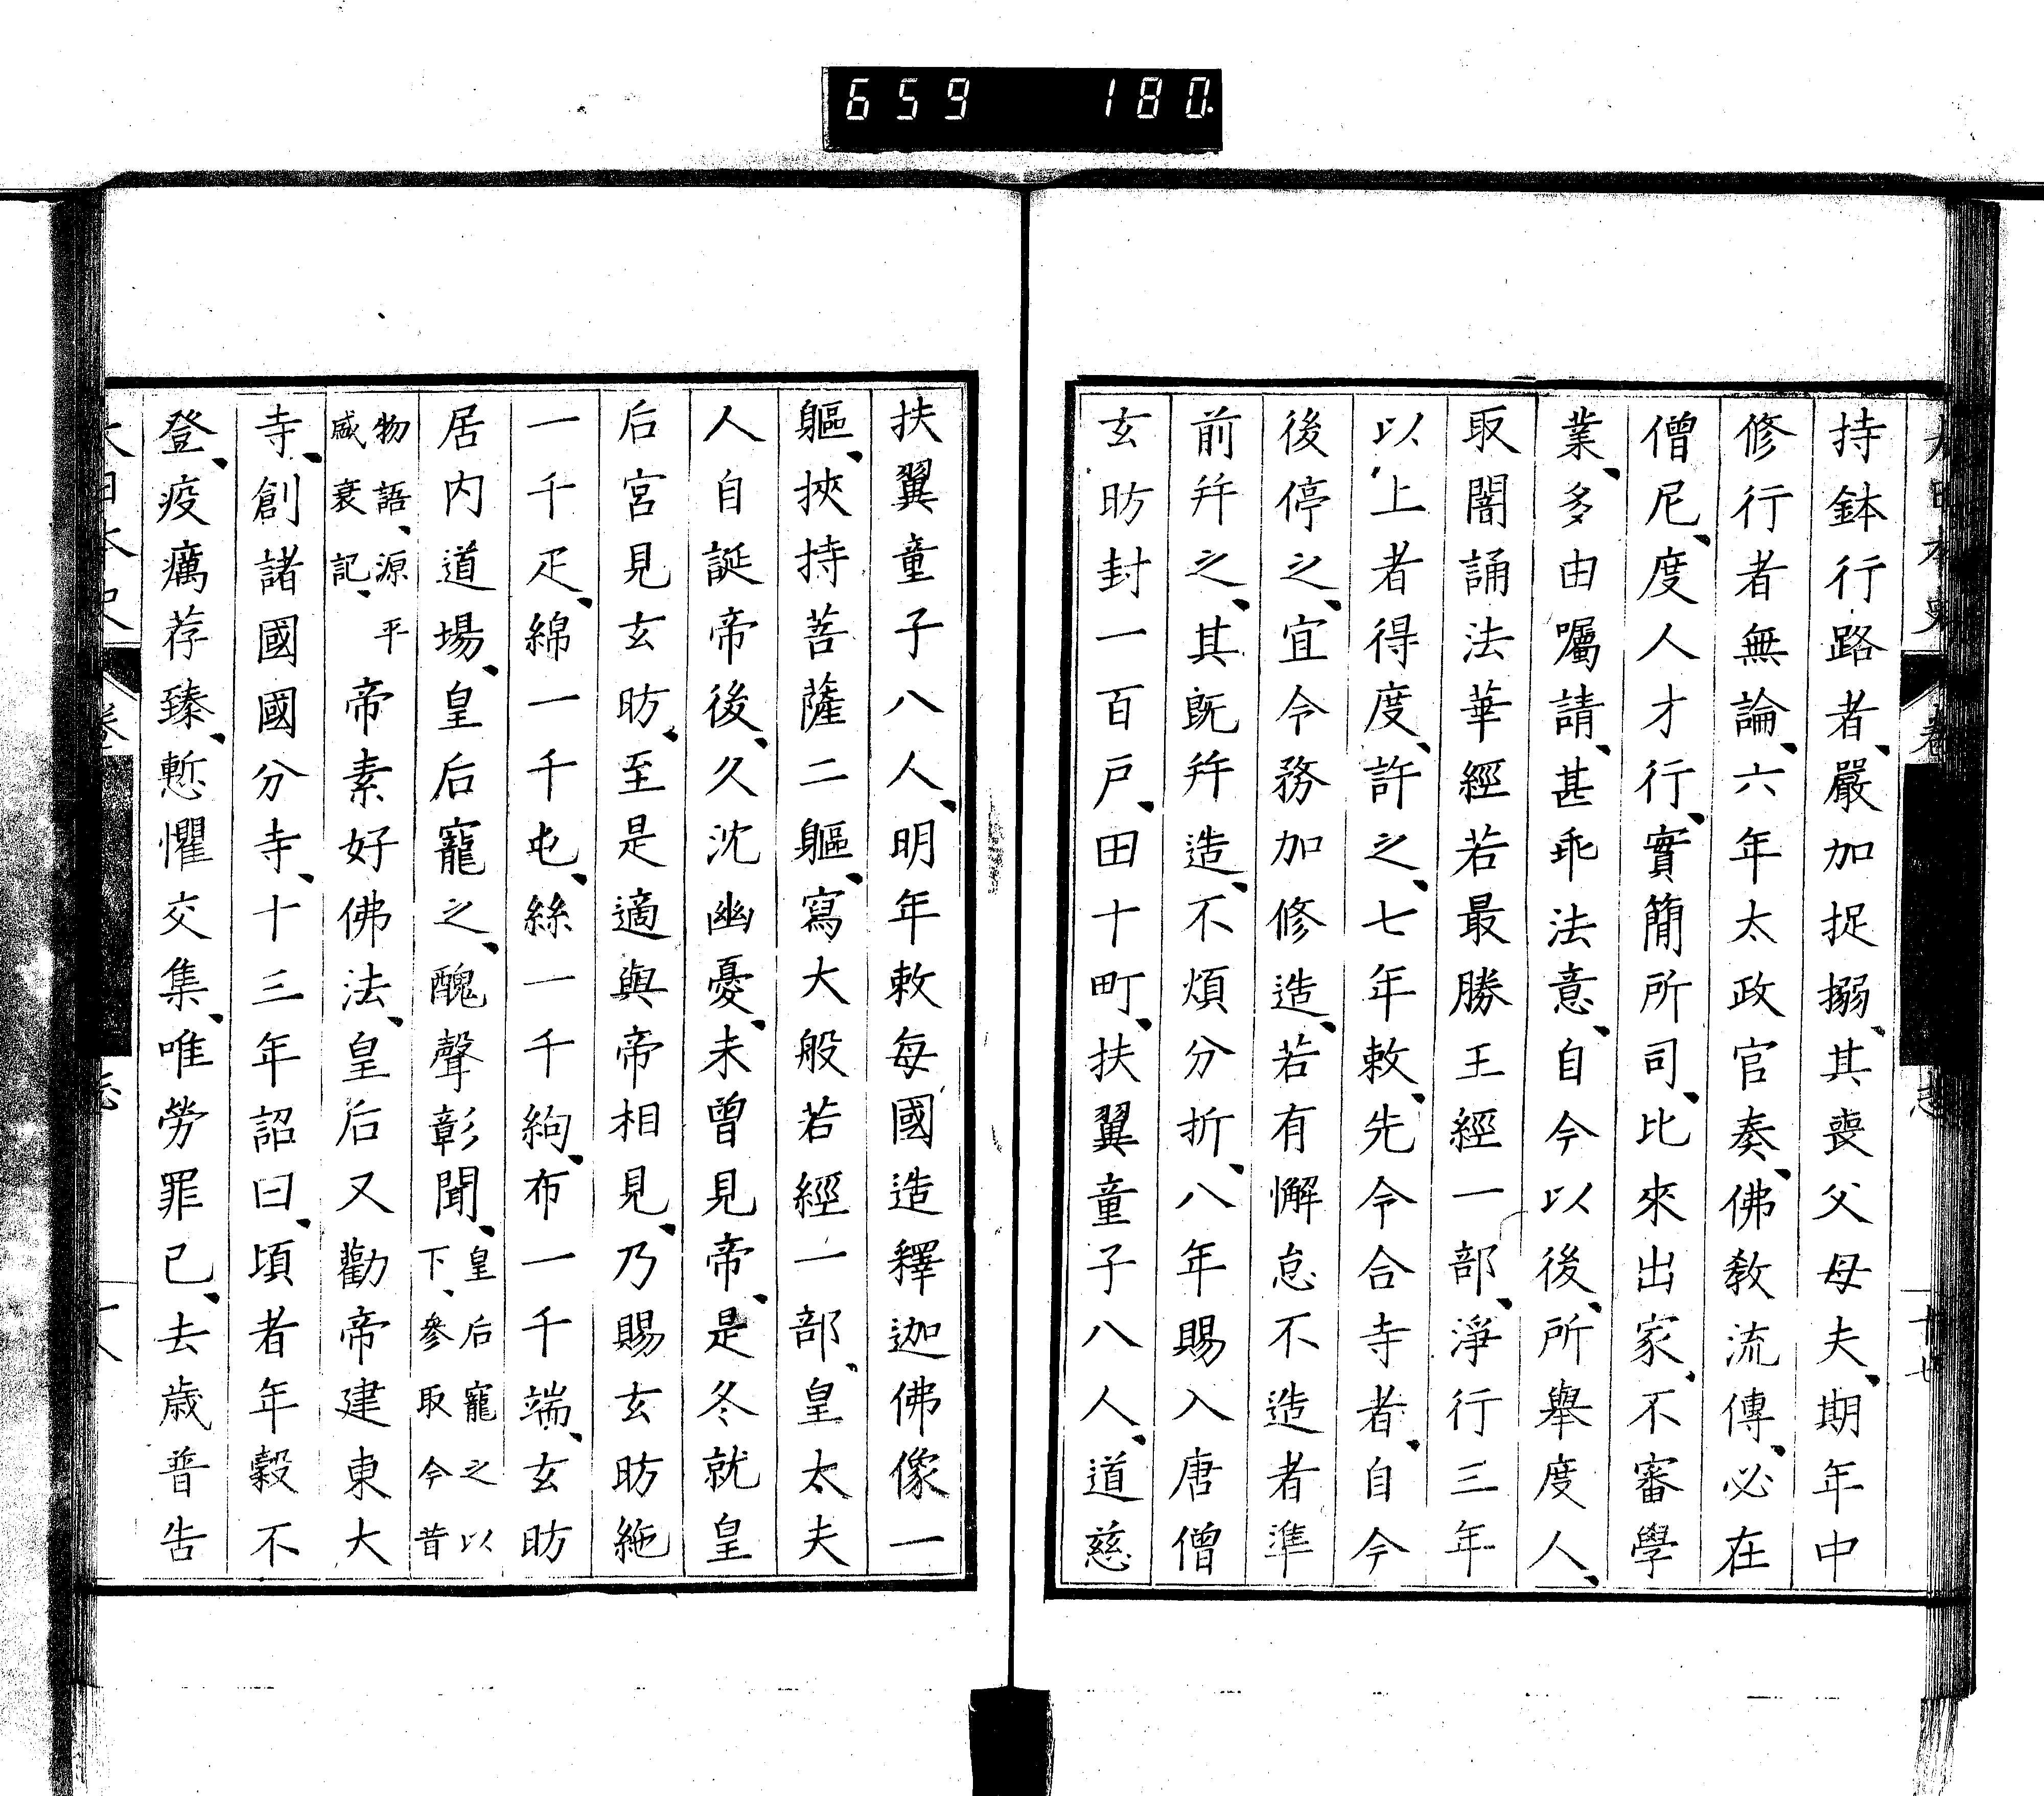 659 180
持鉢行路者、嚴加捉搦、其喪父母夫、期年中
修行者無論、六年太政官奏、佛教流傳、必在
僧尼、度人才行、實簡所司、比來出家、不審學
業、多由囑請、甚乖法意、自今以後、所舉度人、
取闇誦法華經若最勝王經一部、淨行三年
以上者得度、許之、七年敕、先令合寺者、自今
後停之、宜令務加修造、若有懈怠不造者準
前幷之、其既幷造、不煩分折、八年賜入唐僧
玄昉封一百戸、田十町、扶翼童子八人、道慈
扶翼童子八人、明年敕每國造釋迦佛像一
軀、挾持菩薩二軀、寫大般若經一部、皇太夫
人自誕帝後、久沈幽憂、未曾見帝、是冬就皇
后宮見玄昉、至是適與帝相見、乃賜玄昉絁
一千疋、綿一千屯、絲一千絇、布一千端、玄昉
居内道場、皇后寵之、醜聲彰聞、皇后寵之以
下、參取今昔
物語、源平
盛衰記、
帝素好佛法、皇后又勸帝建東大
寺、創諸國國分寺、十三年詔曰、頃者年穀不
登、疫癘荐臻、慙懼交集、唯勞罪已、去歳普告
大日本史